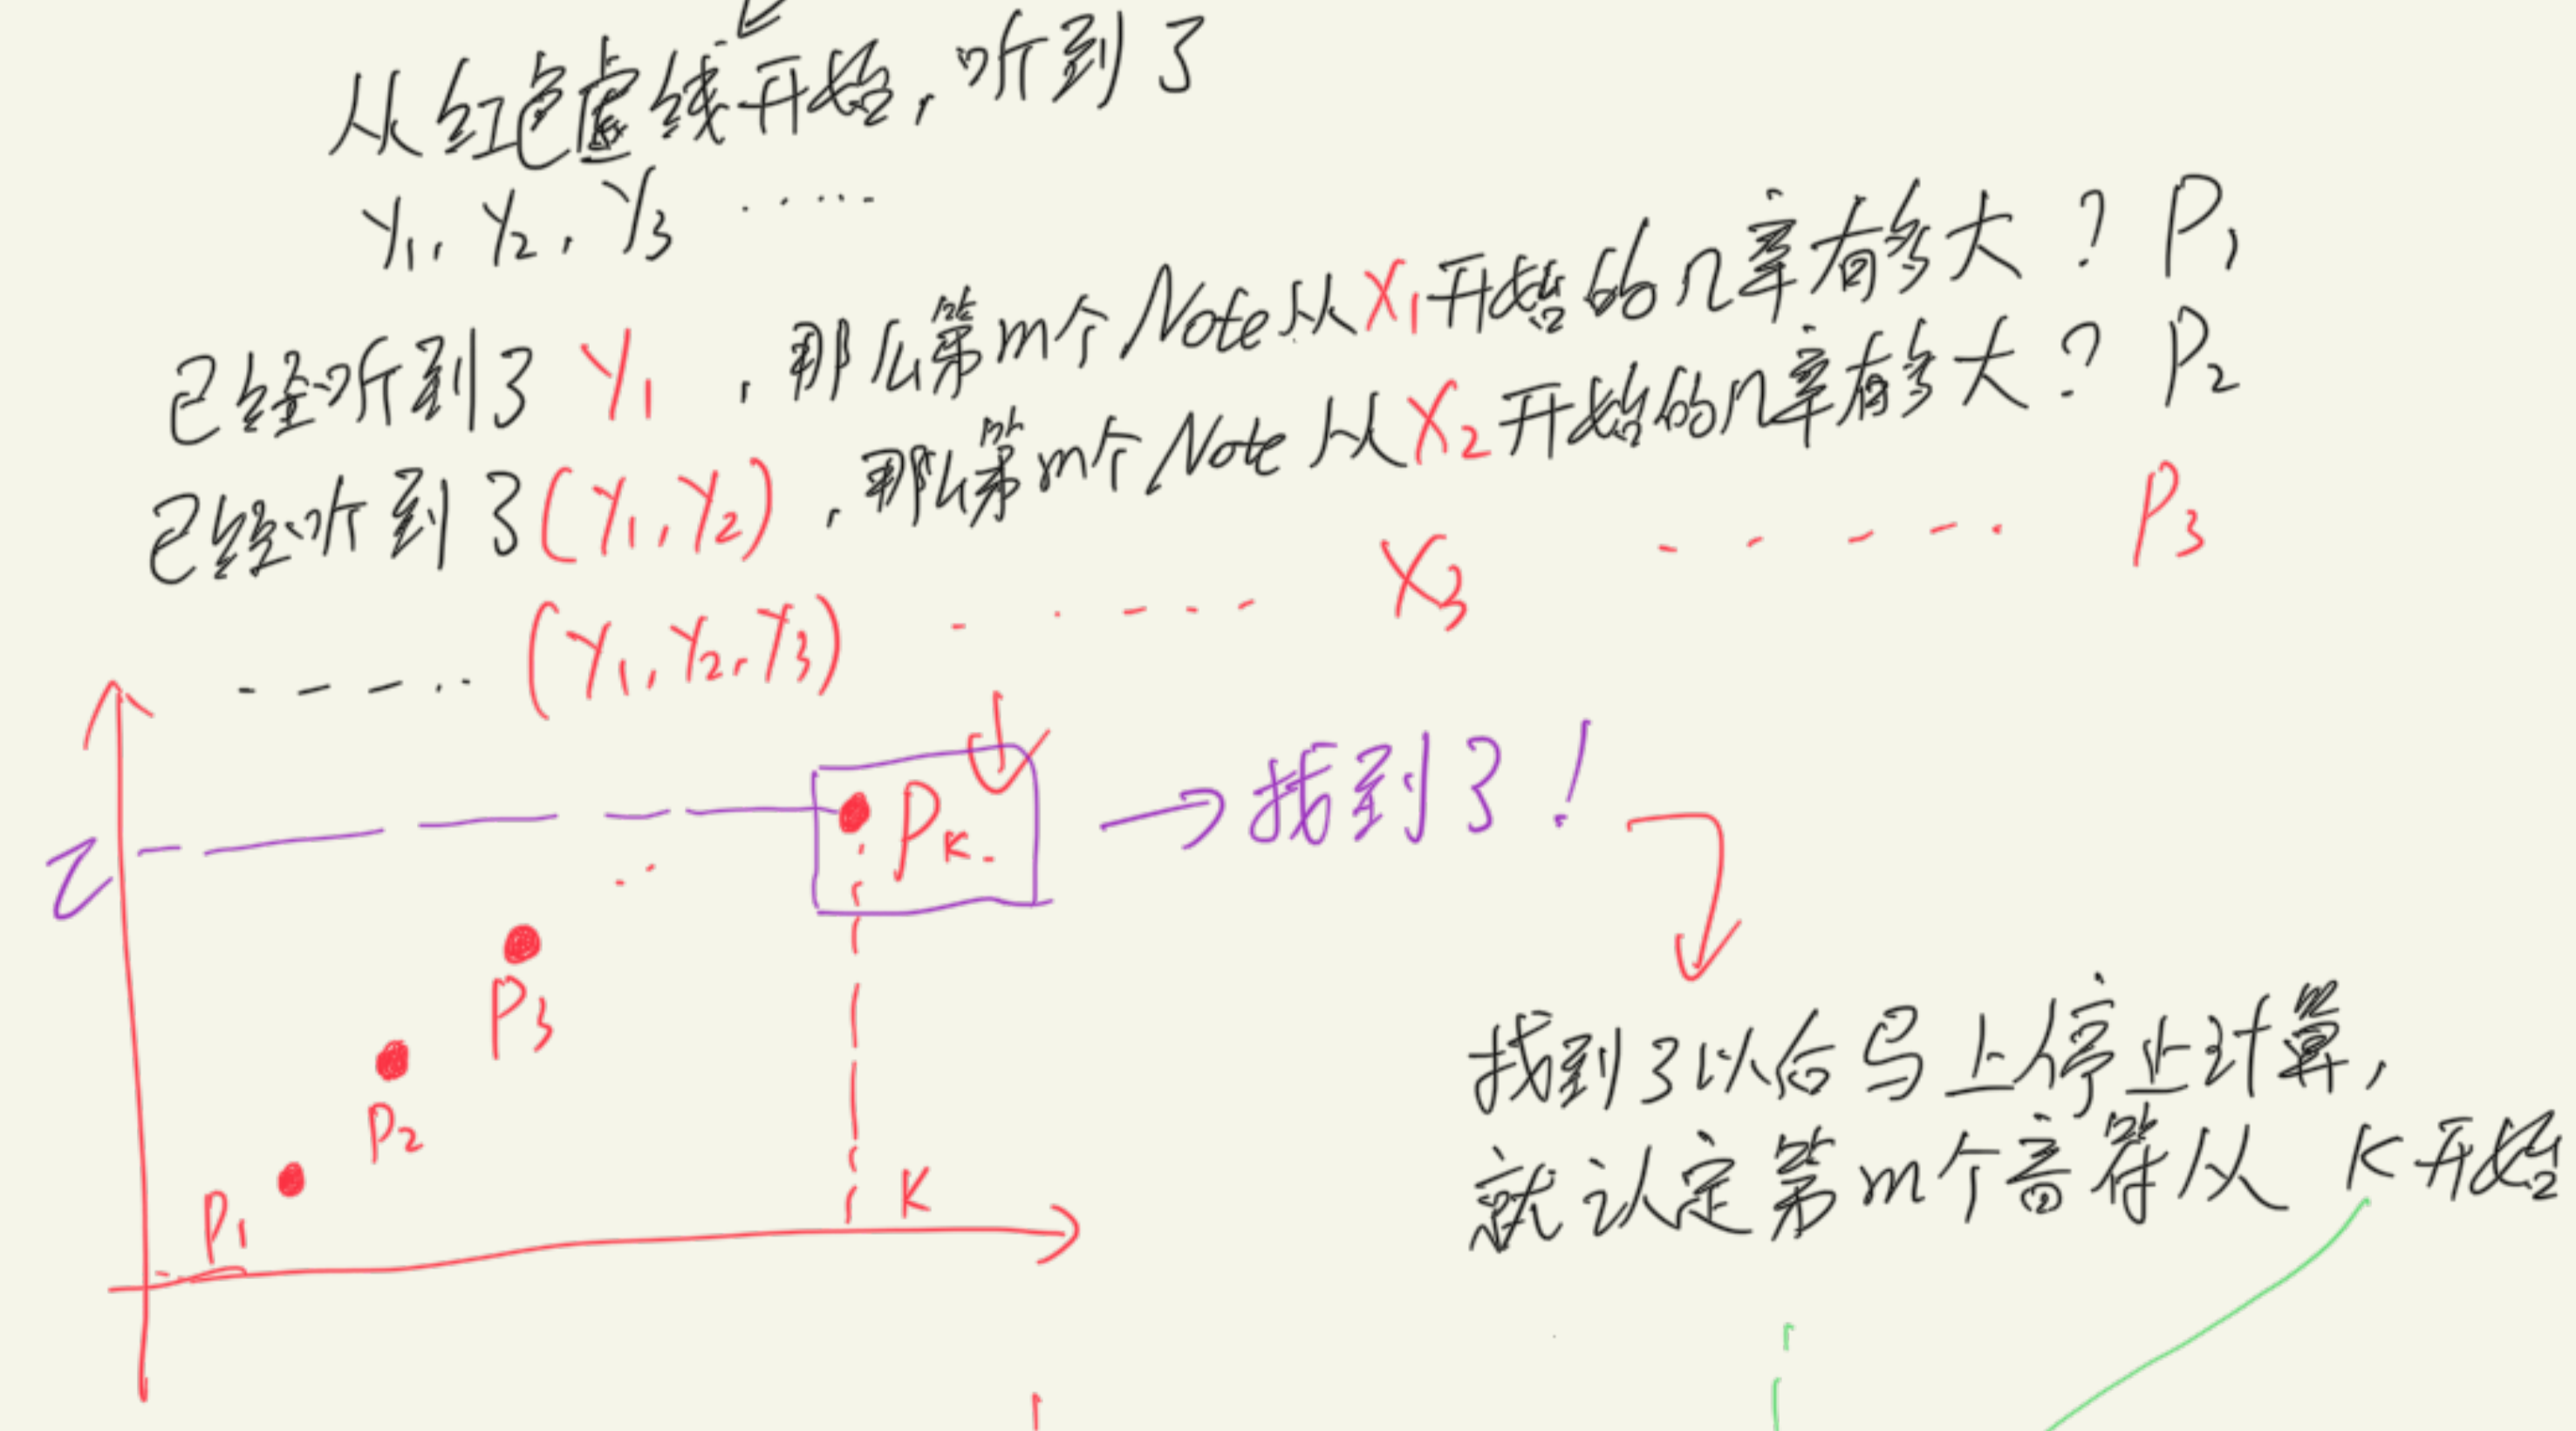 从红色虚线开始,听到了
Y1, Y2, Y3 ·····
已经听到了 Y1 ,那么第m个Note从X1开始的几率有多大? P1
已经听到了(Y1,Y2),那么第m个Note从X2开始的几率有多大? P2
----·· (Y1,Y2,Y3) ----- X3 ----- P3
τ
PK
→找到了!
P3
P2
P1
K
找到了以后马上停止计算,
就认定第m个音符从 K开始